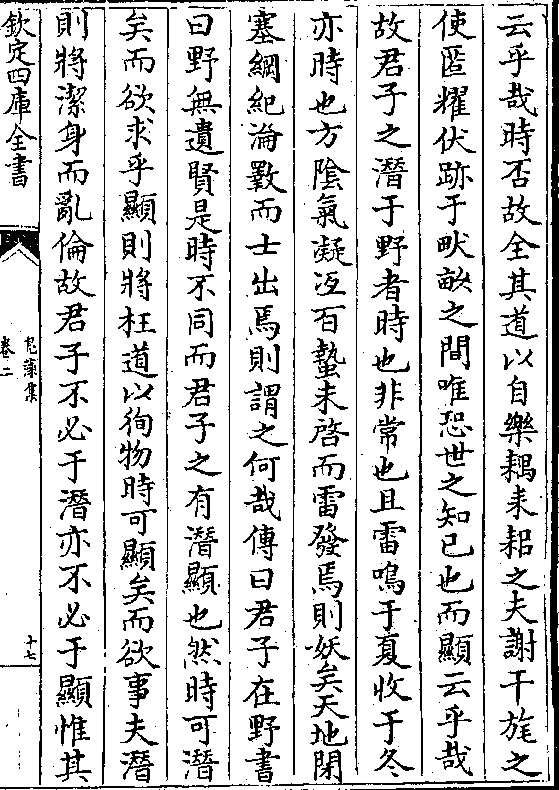 云乎哉時否故全其道以自樂耦耒耜之夫謝干旄之
使匿耀伏跡于畎畝之間唯恐世之知已也而顯云乎哉
故君子之潛于野者時也非常也且雷鳴于夏收于冬
亦時也方陰氣凝冱百蟄未啓而雷發焉則妖矣天地閉
塞綱紀淪斁而士出焉則謂之何哉傳曰君子在野書
曰野無遺賢是時不同而君子之有潛顯也然時可潛
矣而欲求乎顯則將枉道以徇物時可顯矣而欲事夫潛
則將潔身而亂倫故君子不必于潛亦不必于顯惟其
欽定四庫全書
鳧藻集
卷二
十七